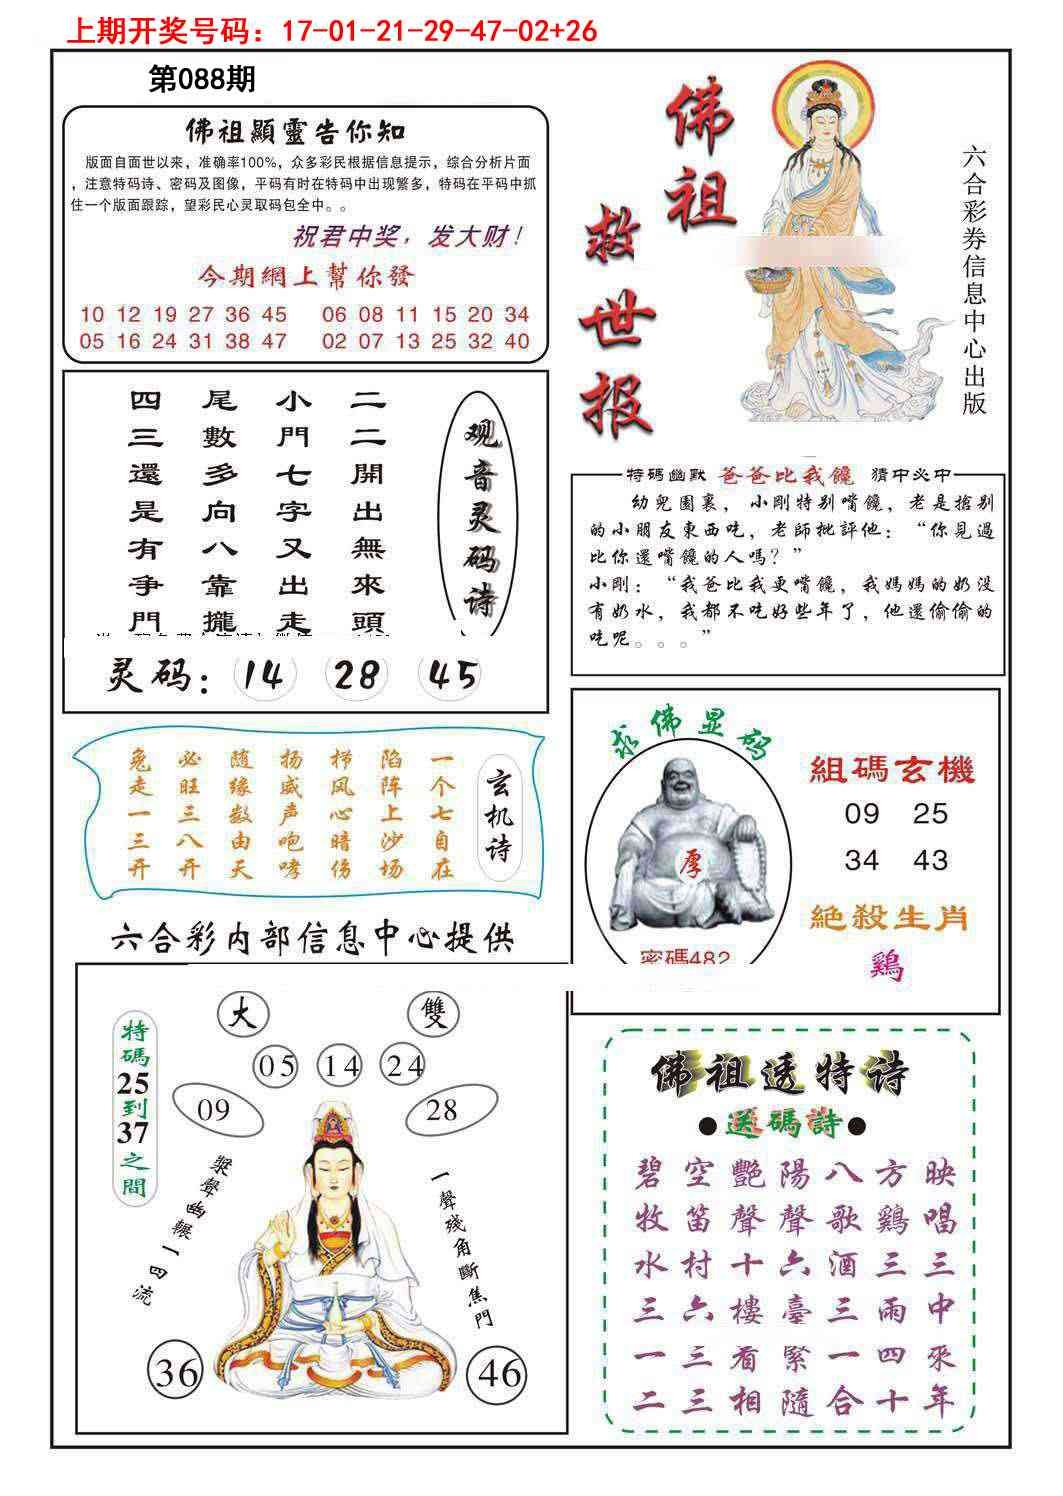 上期开奖号码：17-01-21-29-47-02+26
第088期
佛祖顯靈告你知
版面自面世以来，准确率100%，众多彩民根据信息提示，综合分析片面
，注意特码诗、密码及图像，平码有时在特码中出现繁多，特码在平码中抓
住一个版面跟踪，望彩民心灵取码包全中。。
祝君中奖，发大财！
今期網上幫你發
10 12 19 27 36 45 06 08 11 15 20 34
05 16 24 31 38 47 02 07 13 25 32 40
佛祖
救世报
六合彩券信息中心出版
观音灵码诗
二二開出無來頭
小門七字又出走
尾數多向八靠攏
四三還是有爭門
灵码：14 28 45
特碼幽默 爸爸比我饞 猜中必中
幼兒園裏，小剛特别嘴饞，老是搶别
的小朋友東西吃，老師批評他：“你見過
比你還嘴饞的人嗎？”
小剛：“我爸比我更嘴饞，我媽媽的奶没
有奶水，我都不吃好些年了，他還偷偷的
吃呢。。。”
玄机诗
一个七自在
陷阵上沙场
栉风心暗伤
扬威声咆哮
随缘数由天
必旺三八开
兔走一三开
求佛显码
厚
密碼482
組碼玄機
09 25
34 43
絕殺生肖
鷄
六合彩内部信息中心提供
特碼25到37之間
大 雙
05 14 24
09 28
槳聲幽輾一四流
一聲殘角斷焦門
36 46
佛祖透特诗
●送碼詩●
碧空艷陽八方映
牧笛聲聲歌鷄唱
水村十六酒三三
三六樓臺三雨中
一三看緊一四來
二三相隨合十年